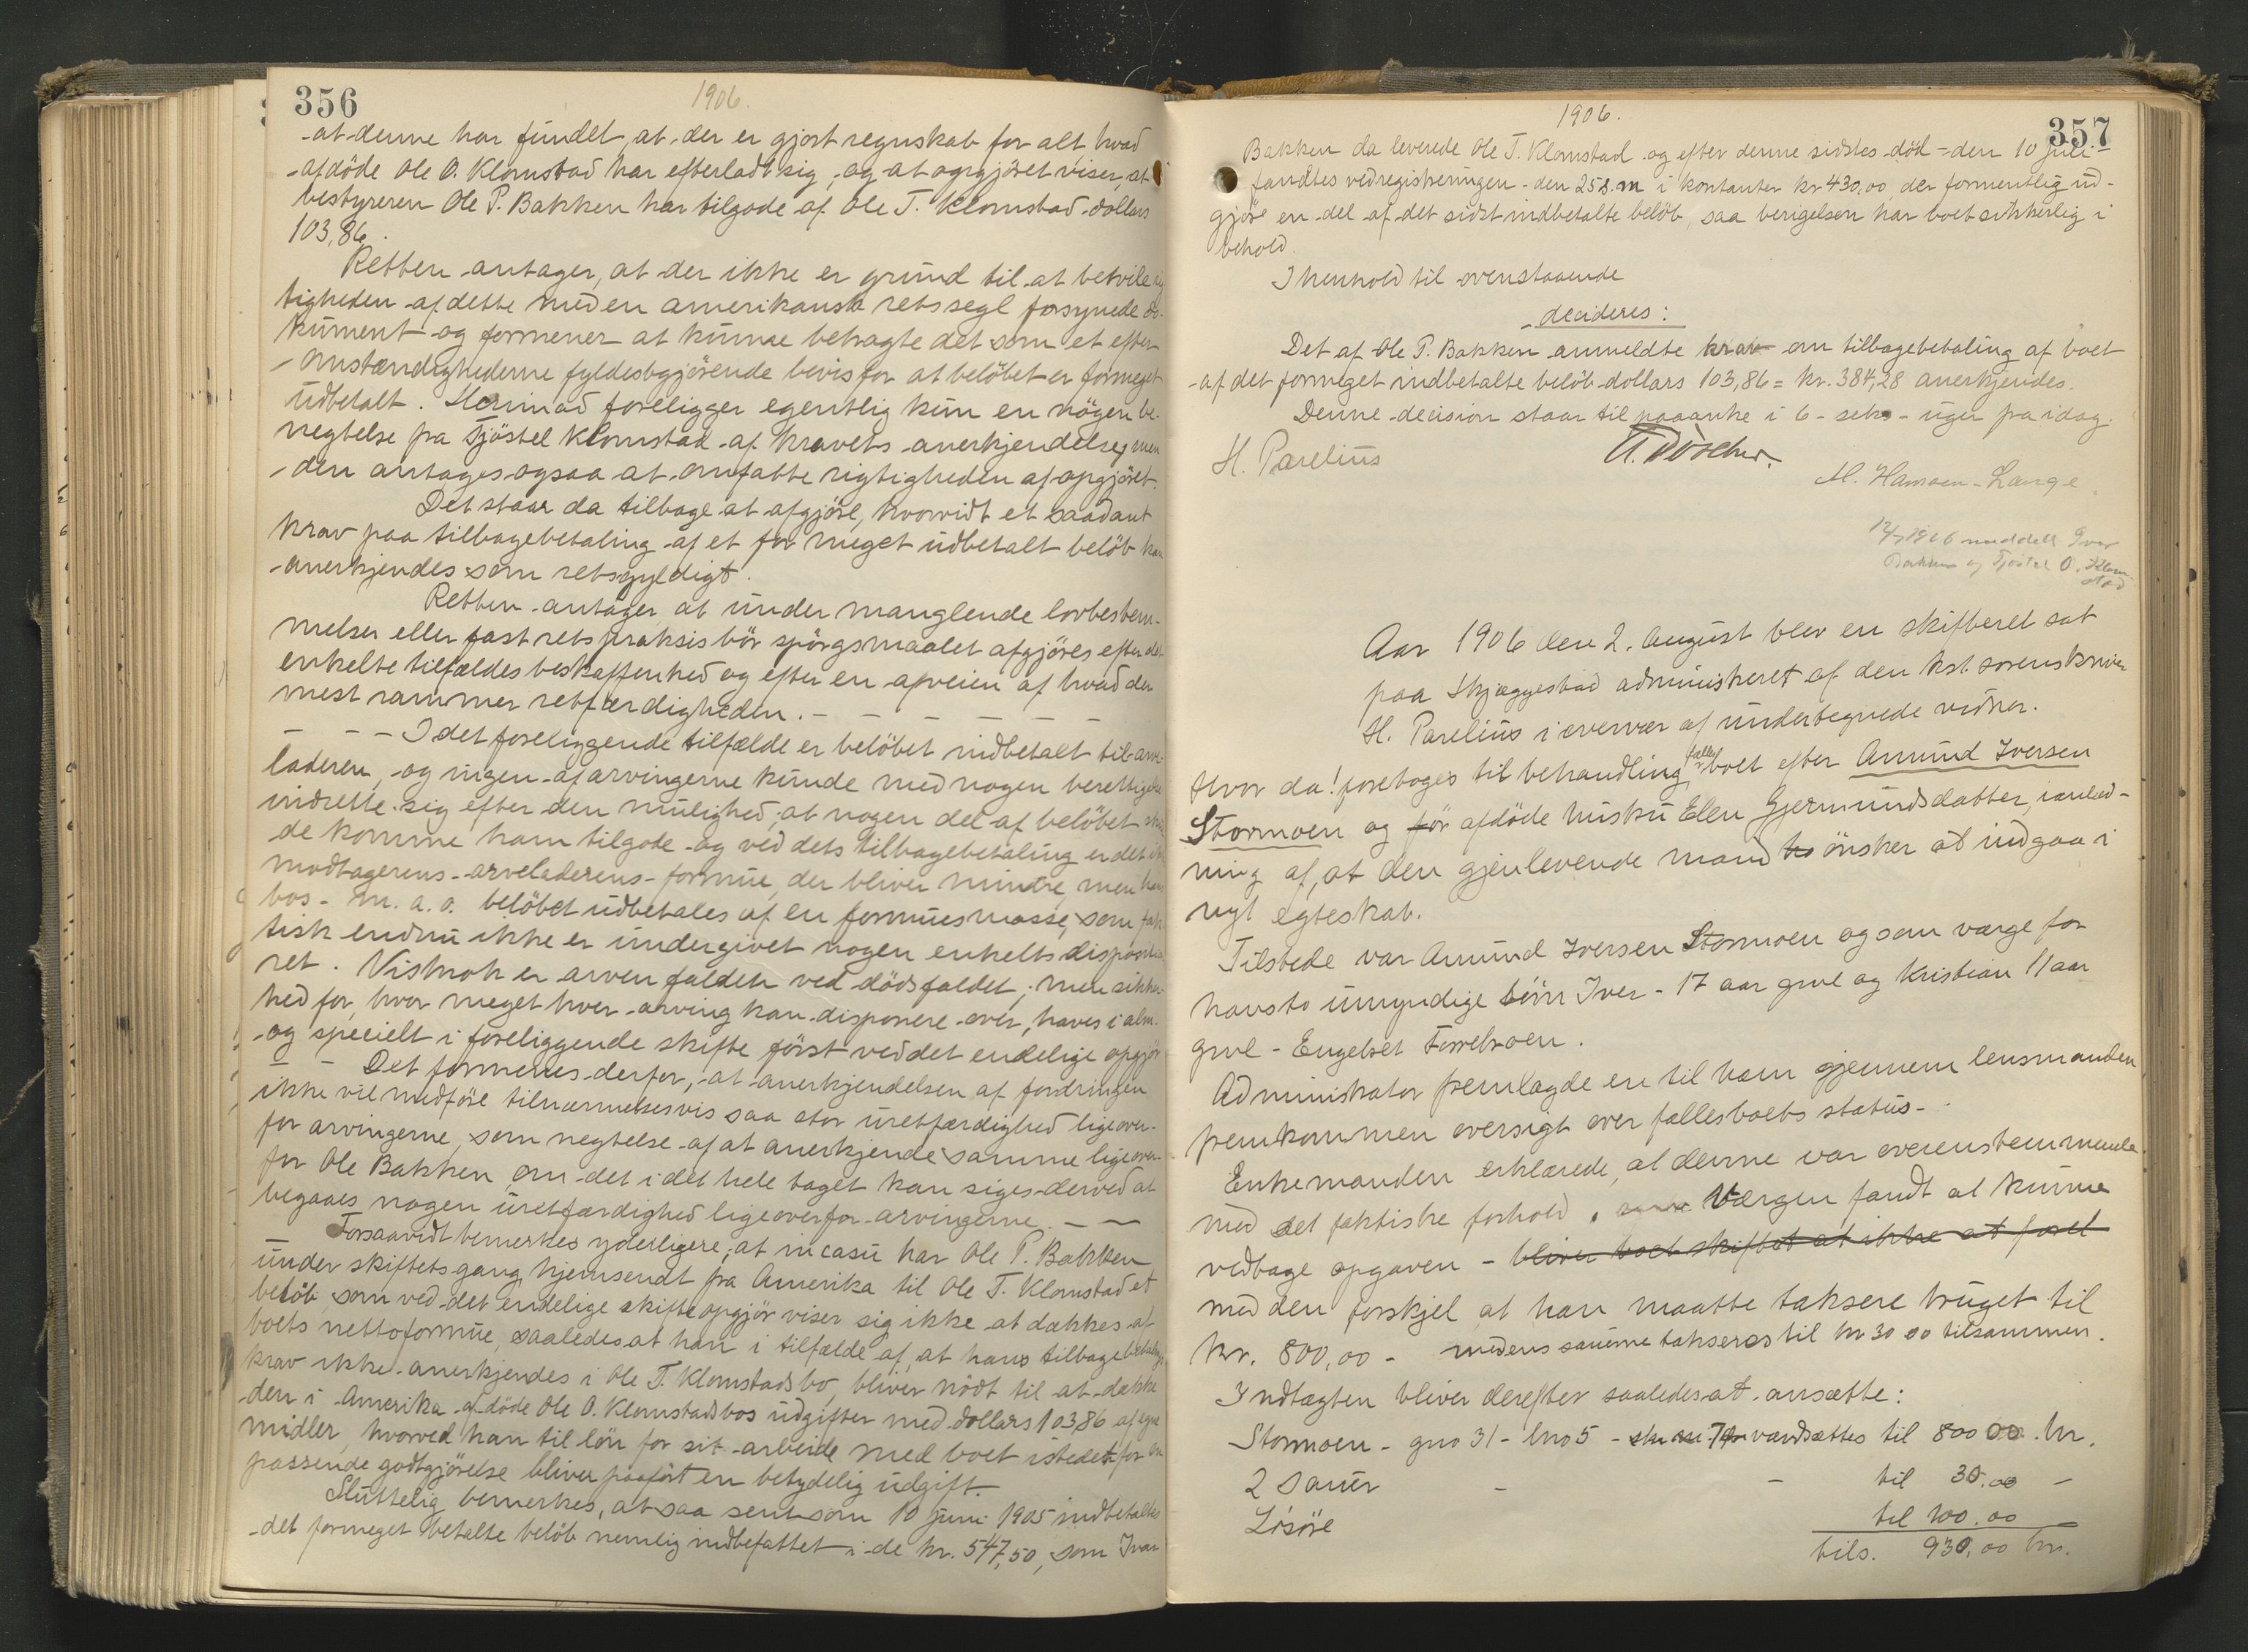 356
1906.
at denne har fundet, at der er gjort regnskab for alt hvad
afdöde Ole O. Klomstad har efterladt sig, og at opgjöret viser, at
bestyreren Ole P. Bakken har tilgode af Ole T. Klomstad dollars
103,86.
Retten antager, at der ikke er grund til at betvile rig
tigheden af dette med en amerikansk rets segl forsynede do-
kument og formener at kunne betragte det som et efter
omstændighederne fyldestgjörende bevis for at belöbet er formeget
udbetalt. Herimod foreligger egentlig kun en nögen be-
negtelse fra Tjöstel Klomstad af kravets anerkjendelse, men
den antages ogsaa at omfatte rigtigheden af opgjöret.
Det staar da tilbage at afgjöre, hvorvidt et saadant
krav paa tilbagebetaling af et for meget udbetalt belöb kan
anerkjendes som retsgyldigt.
Retten antager at under manglende lovbestem-
melser eller fast retspraksis bör spörgsmaalet afgjöres efter det
enkelte tilfældes beskaffenhed og efter en afveien af hvad der
mest rammer retfærdigheden. — — — — — —
— — — I det foreliggende tilfælde er belöbet indbetalt til arve-
laderen, og ingen af arvingerne kunde med nogen berettigelse
indrette sig efter den mulighed, at nogen del af belöbet skul
de komme ham tilgode og ved dets tilbagebetaling er det ikke
modtagerens - arveladerens - formue, der bliver mindre, men hans
bos - m. a. o. belöbet udbetales af en formuesmasse, som fak-
tisk endnu ikke er undergivet nogen enkelts disposition
ret. Vistnok er arven falden ved dödsfaldet; men sikker-
hed for, hvor meget hver arving kan disponere over, haves i alm.
og specielt i foreliggende skifte först ved det endelige opgjör
— — Det formenes derfor, at anerkjendelsen af fordringen
ikke vil medföre tilnærmelsesvis saa stor uretfærdighed ligeover-
for arvingerne, som negtelse af at anerkjende samme ligeover
for Ole Bakken, om det i det hele taget kan siges derved at
begaaes nogen uretfærdighed ligeoverfor arvingerne. — —
Forsaavidt bemerkes yderligere, at in casu har Ole P. Bakken
under skiftets gang hjemsendt fra Amerika til Ole T. Klomstad et
belöb, som ved det endelige skifteopgjör viser sig ikke at dækkes af
boets nettoformue, saaledes at han i tilfælde af, at hans tilbagebetalings
krav ikke anerkjendes i Ole T. Klomstads bo, bliver nödt til at dække
den i Amerika afdöde Ole O. Klomstads bos udgifter med dollars 103,86 af egne
midler, hvorved han til lön for sit arbeide med boet istedetfor en
passende godtgjörelse bliver paafört en betydelig udgift.
Sluttelig bemerkes, at saa sent som 10 juni 1905 indbetaltes
det formeget betalte belöb nemlig indbefattet i de kr. 547,50, som Ivar
1906.
357
Bakken da leverede Ole T. Klomstad og efter denne sidstes död - den 10 juli -
fandtes ved registreringen - den 25 s. m i kontanter kr 430,00, der formentlig ud-
gjör en del af det sidst indbetalte belöb, saa berigelsen har boet sikkerlig i
behold.
I henhold til ovenstaaende
decideres:
Det af Ole P. Bakken anmeldte krav om tilbagebetaling af boet
af det formeget indbetalte belöb dollars 103,86 = kr. 384,28 anerkjendes.
Denne decision staar til paaanke i 6 - seks - uger fra idag.
H. Parelius
M. Hansen-Lange
12/7 1906 meddelt Ivar
Bakken og Tjöstel O. Klom-
stad
Aar 1906 den 2. August blev en skifteret sat
paa Skjæggestad administreret af den kst. sorenskriver
H. Parelius i overvær af undertegnede vidner.
Hvor da! foretoges til behandling fælles boet efter Amund Iversen
Stormoen og för afdöde husku Elen Gjermundsdatter, i anled-
ning af, at den gjenlevende mand ønsker at indgaa i
nyt egteskab.
Tilstede var Amund Iversen Stormoen og som værge for
hans to umyndige börn Iver - 17 aar gml og Kristian 11 aar
gml - Engebret
Administrator fremlagde en til ham gjennem lensmanden
fremkommen oversigt over fællesboets status.
Enkemanden erklærede, at denne var overenstemmende
med det faktiske forhold. Værgen fandt at kunne
vedtage opgaven - bliver boet skiftet at ikke at
med den forskjel at han maatte taksere bruget til
kr. 800,00 - medens sauerne takseres til kr 30 00 tilsammen.
Indtægten bliver derefter saaledes at ansætte:
Stormoen - gno 31 - bno 5 - værdsættes til 800 00 kr.
2 sauer - - til 30.00 -
Lösöre til 100.00
tils. 930,00 kr.